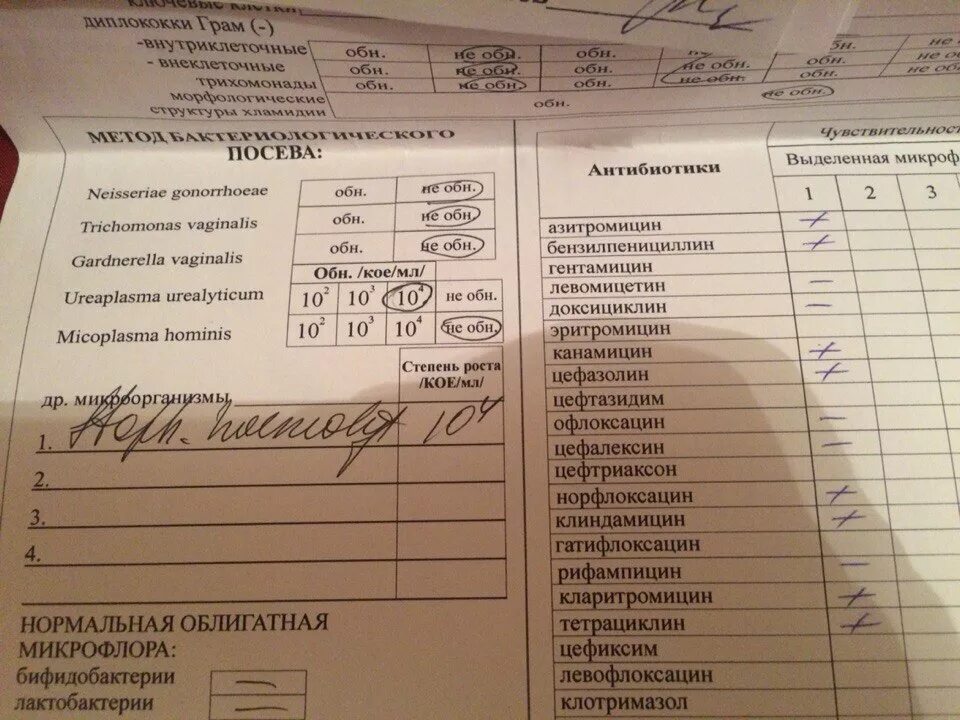 ключевые клетки
диплококки Грам (-)
-внутриклеточные обн. не обн. обн. обн. не
- внеклеточные обн. не обн. обн. не обн. обн. не обн.
трихомонады обн. не обн. обн. не обн. обн. не обн.
морфологические
структуры хламидии обн. не обн.
МЕТОД БАКТЕРИОЛОГИЧЕСКОГО
ПОСЕВА:
Neisseriae gonorrhoeae обн. не обн.
Trichomonas vaginalis обн. не обн.
Gardnerella vaginalis обн. не обн.
Обн. /кое/мл/
Ureaplasma urealyticum 10² 10³ 10⁴ не обн.
Micoplasma hominis 10² 10³ 10⁴ не обн.
Степень роста
/КОЕ/мл/
др. микроорганизмы
1. 10⁴
2.
3.
4.
НОРМАЛЬНАЯ ОБЛИГАТНАЯ
МИКРОФЛОРА:
бифидобактерии —
лактобактерии —
Чувствительнос
Антибиотики
Выделенная микроф
1 2 3
азитромицин +
бензилпенициллин +
гентамицин
левомицетин —
доксициклин —
эритромицин
канамицин +
цефазолин +
цефтазидим
офлоксацин —
цефалексин —
цефтриаксон
норфлоксацин +
клиндамицин +
гатифлоксацин
рифампицин —
кларитромицин +
тетрациклин +
цефиксим
левофлоксацин
клотримазол